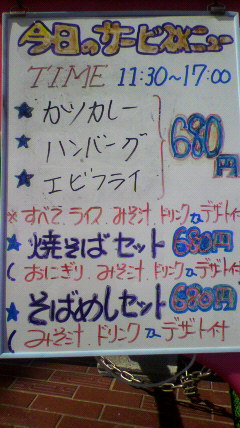 今日のサービスメニュー
TIME 11:30~17:00
★ カツカレー
★ ハンバーグ
★ エビフライ
680円
※ すべて、ライス、みそ汁、ドリンク or デザート付
★ 焼そばセット 680円
(おにぎり、みそ汁、ドリンク or デザート付
★ そばめしセット 680円
(みそ汁、ドリンク or デザート付